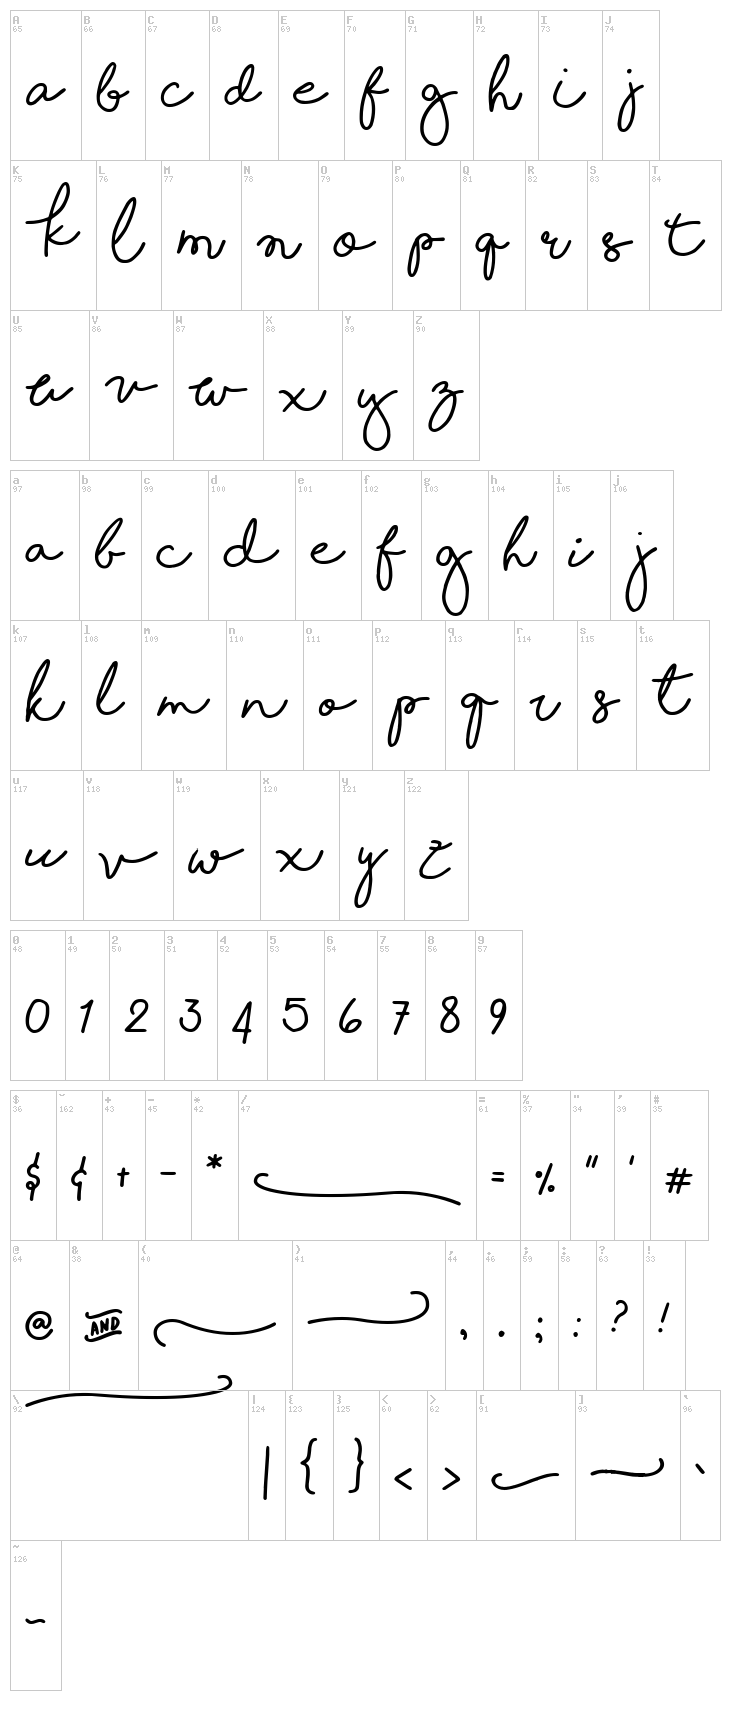 A B C D E F G H I J
65 66 67 68 69 70 71 72 73 74
a b c d e f g h i j
K L M N O P Q R S T
75 76 77 78 79 80 81 82 83 84
k l m n o p q r s t
U V W X Y Z
85 86 87 88 89 90
u v w x y z
a b c d e f g h i j
97 98 99 100 101 102 103 104 105 106
a b c d e f g h i j
k l m n o p q r s t
107 108 109 110 111 112 113 114 115 116
k l m n o p q r s t
u v w x y z
117 118 119 120 121 122
u v w x y z
0 1 2 3 4 5 6 7 8 9
48 49 50 51 52 53 54 55 56 57
0 1 2 3 4 5 6 7 8 9
$ ˘ + - * / = % " ' #
36 162 43 45 42 47 61 37 34 39 35
$ ¢ + - * = % " ' #
@ & ( ) , . ; : ? !
64 38 40 41 44 46 59 58 63 33
@ AND , . ; : ? !
\ | { } < > [ ] `
92 124 123 125 60 62 91 93 96
| { } < > `
~
126
~